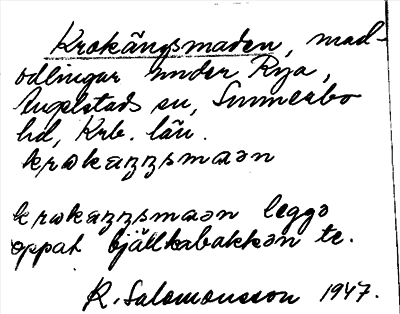 Krokängsmaden, mad-
odlingar under Rya,
sn, Sunnerbo
hd, Krb. län.
krokäŋŋsmaən
krokäŋŋsmaən leggə
oppat bjällkabakkən te.
R. Salomonsson 1947.